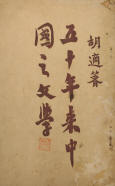 胡適著
五十年来中
國之文學